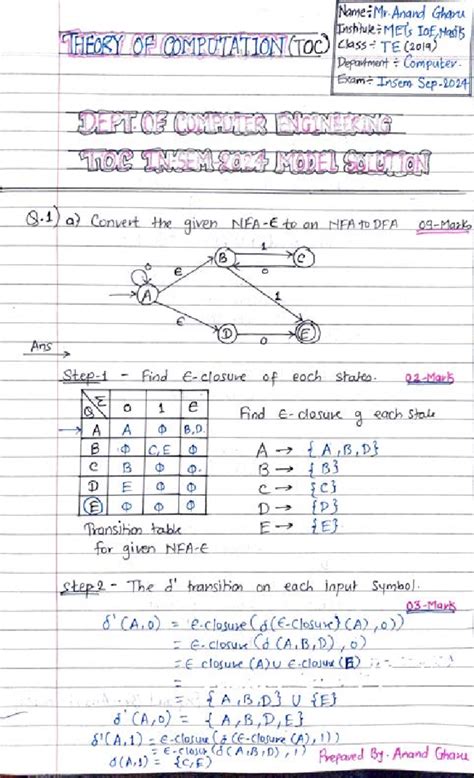 Name:- Mr. Anand Gharu
Institute:- MET's IoE, Nashik
Class:- TE (2019)
Department ÷ Computer.
Exam:- Insem Sep-2024
THEORY OF COMPUTATION (TOC)
DEPT. OF COMPUTER ENGINEERING
TOC INSEM 2024 MODEL SOLUTION
Q.1) a) Convert the given NFA-ε to an NFA to DFA 09-Marks
0 A ε B 1 C 0
1
ε D 0 E
Ans
Step-1 - Find ε-closure of each states. 02-Mark
Q Σ 0 1 e
A A Φ B,D.
B Φ C,E Φ
C B Φ Φ.
D E Φ Φ
E Φ Φ Φ
Transition table
for given NFA-ε
Find ε-closure g each state
A → {A,B,D}
B → {B}
C → {C}
D → {D}
E → {E}
Step 2 - The d' transition on each input Symbol.
03-Mark
δ'(A,0) = ε-closure(δ(ε-closure(A),0))
= ε-closure(δ(A,B,D),0)
= ε closure(A) ∪ ε-closure(E)
= {A,B,D} ∪ {E}
δ'(A,0) = {A,B,D,E}
δ'(A,1) = ε-closure(δ(ε-closure(A),1))
= ε-closur(δ(A,B,D),1)
δ(A,1) = {C,E}
Prepared By. Anand Gharu